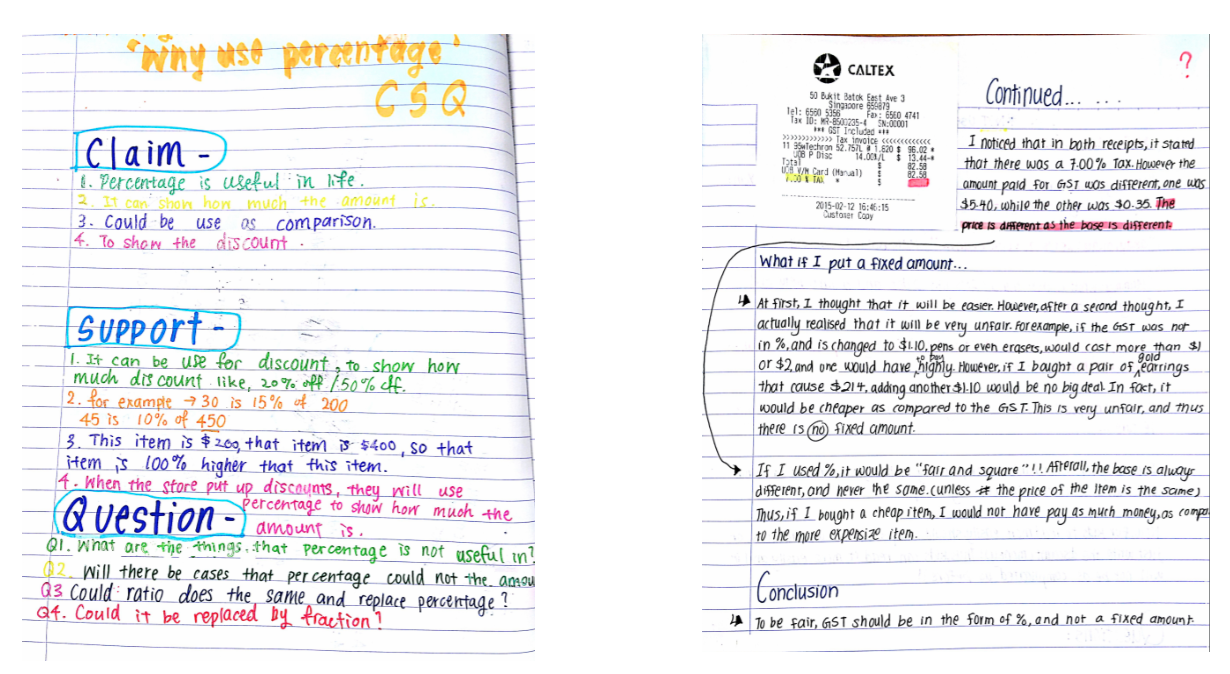 "Why use percentage"
CSQ
Claim -
1. Percentage is useful in life.
2. It can show how much the amount is.
3. Could be use as comparison.
4. To show the discount.
Support -
1. It can be use for discount, to show how
much discount like, 20% off / 50% off.
2. for example → 30 is 15% of 200
45 is 10% of 450
3. This item is $200, that item is $400, so that
item is 100% higher that this item.
4. When the store put up discounts, they will use
percentage to show how much the
amount is.
Question -
Q1. What are the things, that percentage is not useful in?
Q2. Will there be cases that percentage could not the amou
Q3 Could ratio does the same and replace percentage?
Q4. Could it be replaced by fraction?
CALTEX
50 Bukit Batok East Ave 3
Singapore 659879
Tel: 6560 5356 Fax: 6560 4741
Tax ID: MR-8500235-4 SN:00001
*** GST Included ***
>>>>>>>>>>>> Tax invoice <<<<<<<<<<<<
11 95wTechron 52.757L @ 1.820 $ 96.02 *
UOB P Disc 14.00%/L $ 13.44-*
Total $ 82.58
UOB V/M Card (Manual) $ 82.58
7.00 % TAX * $
2015-02-12 16:46:15
Customer Copy
?
Continued... ...
I noticed that in both receipts, it stated
that there was a 7.00% Tax. However the
amount paid for GST was different, one was
$5.40, while the other was $0.35. The
price is different as the base is different.
What if I put a fixed amount...
At first, I thought that it will be easier. However, after a second thought, I
actually realised that it will be very unfair. For example, if the GST was not
in %, and is changed to $1.10, pens or even erasers, would cost more than $1
or $2, and one would have to pay highly. However, if I bought a pair of gold earrings
that cause $214, adding another $1.10 would be no big deal. In fact, it
would be cheaper as compared to the GST. This is very unfair, and thus
there is no fixed amount.
If I used %, it would be "fair and square"!! Afterall, the base is always
different, and never the same. (unless the price of the item is the same)
Thus, if I bought a cheap item, I would not have pay as much money, as compa
to the more expensize item.
Conclusion
To be fair, GST should be in the form of %, and not a fixed amount.